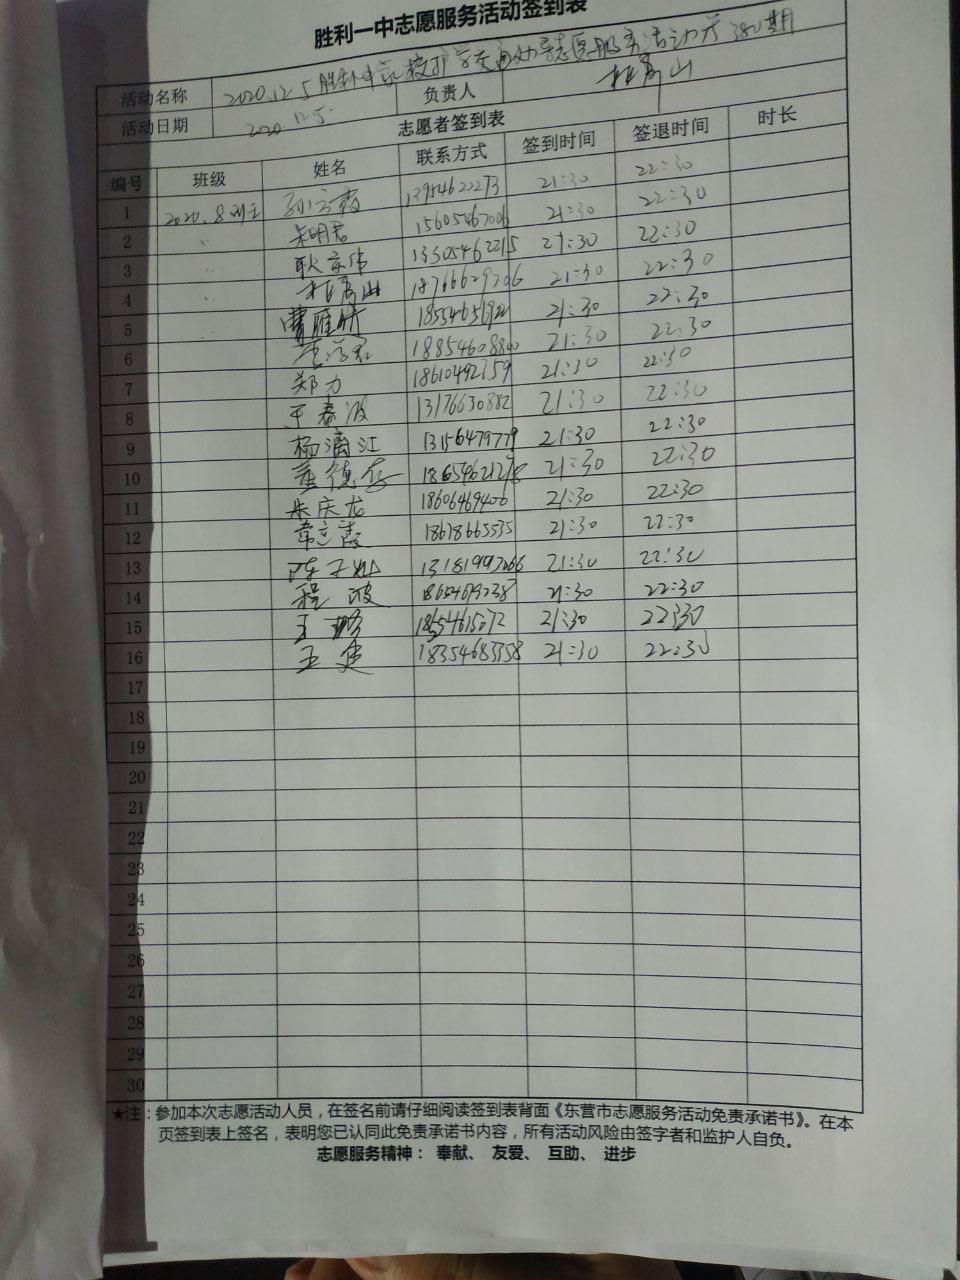 胜利一中志愿服务活动签到表
活动名称 2020.12.5胜利一中 护学 志愿服务活动 期 负责人 杜秀山
活动日期 2020.12.5
志愿者签到表
编号 班级 姓名 联系方式 签到时间 签退时间 时长
1 2020.8 13954622273 21:30 22:30
2 〃 朱明君 15605467006 21:30 22:30
3 〃 耿京伟 13305462215 21:30 22:30
4 〃 杜秀山 18766629706 21:30 22:30
5 〃 曹雁 21:30 22:30
6 21:30 22:30
7 郑力 18610492759 21:30 22:30
8 王春波 13176630882 21:30 22:30
9 杨满江 13156479779 21:30 22:30
10 董德存 21:30 22:30
11 朱庆龙 18606469406 21:30 22:30
12 18678665535 21:30 22:30
13 21:30 22:30
14 程波 21:30 22:30
15 王璐 21:30 22:30
16 王建 18354683358 21:30 22:30
17
18
19
20
21
22
23
24
25
26
27
28
29
30
★注：参加本次志愿活动人员，在签名前请仔细阅读签到表背面《东营市志愿服务活动免责承诺书》。在本
页签到表上签名，表明您已认同此免责承诺书内容，所有活动风险由签字者和监护人自负。
志愿服务精神： 奉献、 友爱、 互助、 进步